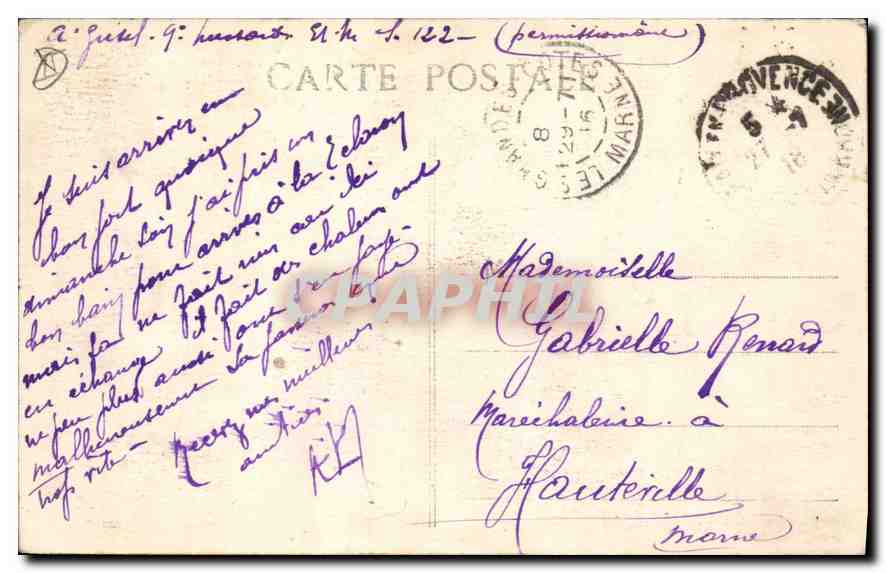 A. Grisel. 9e hussards Et. M S. 122 - (permissionnaire)
CARTE POSTALE
LES GRANDES COTES MARNE
8 29-7 16
PROVENCE
MARNE
N
Je suis arrivé en
bon port quoique
dimanche soir j'ai pris un
bon bain pour arriver à la Eclaron
mais ça ne fait rien car ici
en échange il fait des chaleurs ont
ne peu plus aussi on
malheureusement la permission
trop vite -
Recevez mes meilleures
amitiés
CPAPHIL
Mademoiselle
Gabrielle Renard
Maréchalerie. à
Hauteville
Marne